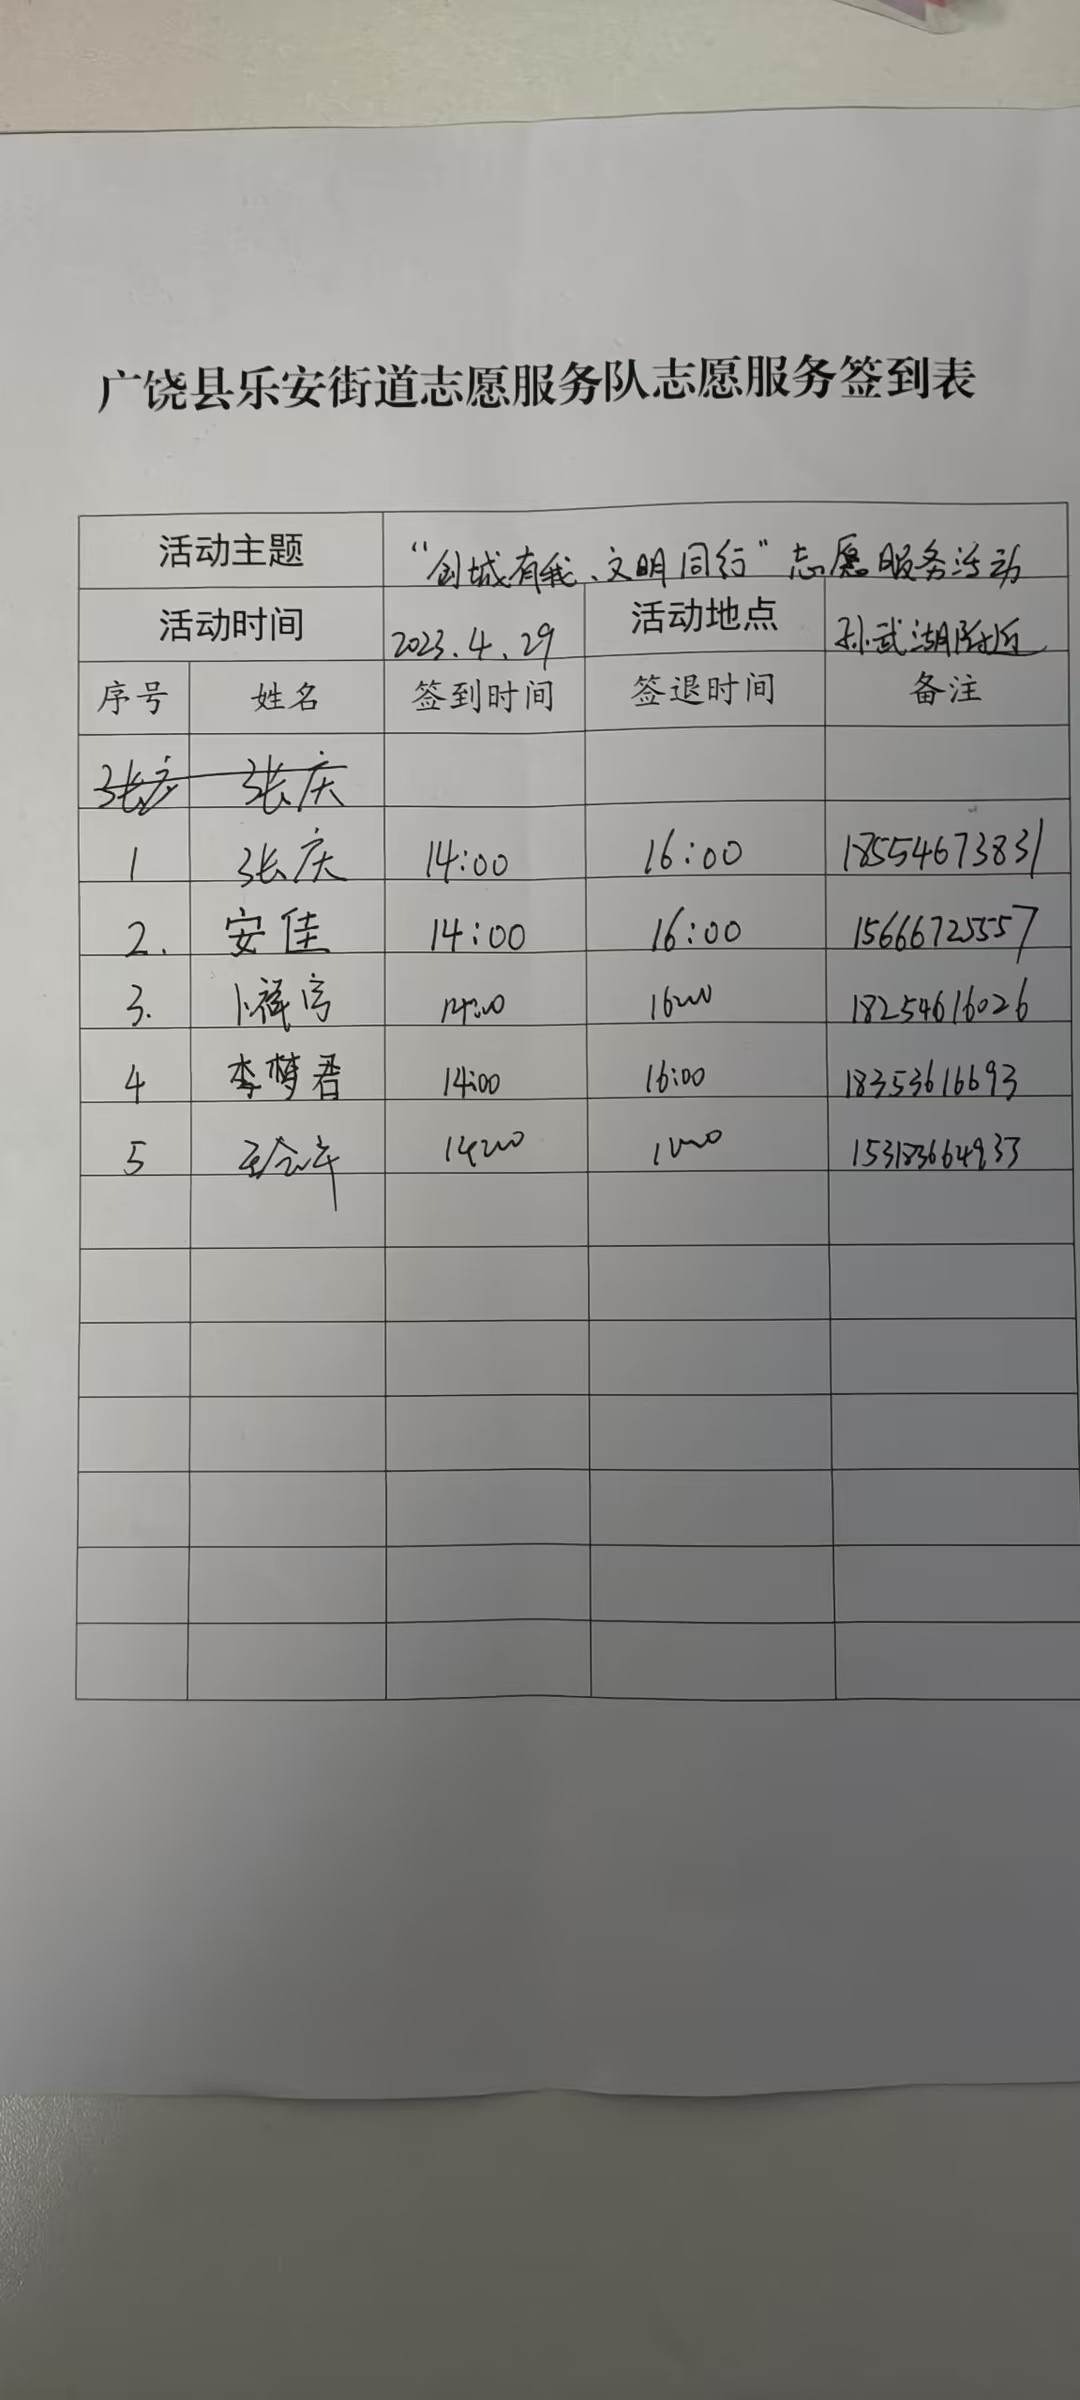 广饶县乐安街道志愿服务队志愿服务签到表
活动主题 “创城有我、文明同行”志愿服务活动
活动时间 2023.4.29 活动地点 孙武湖附近
序号 姓名 签到时间 签退时间 备注
张庆 张庆
1 张庆 14:00 16:00 18554673831
2. 安佳 14:00 16:00 15666725557
3. 卜祥 14:00 16:00 18254616026
4 李梦君 14:00 16:00 18353616693
5 14:00